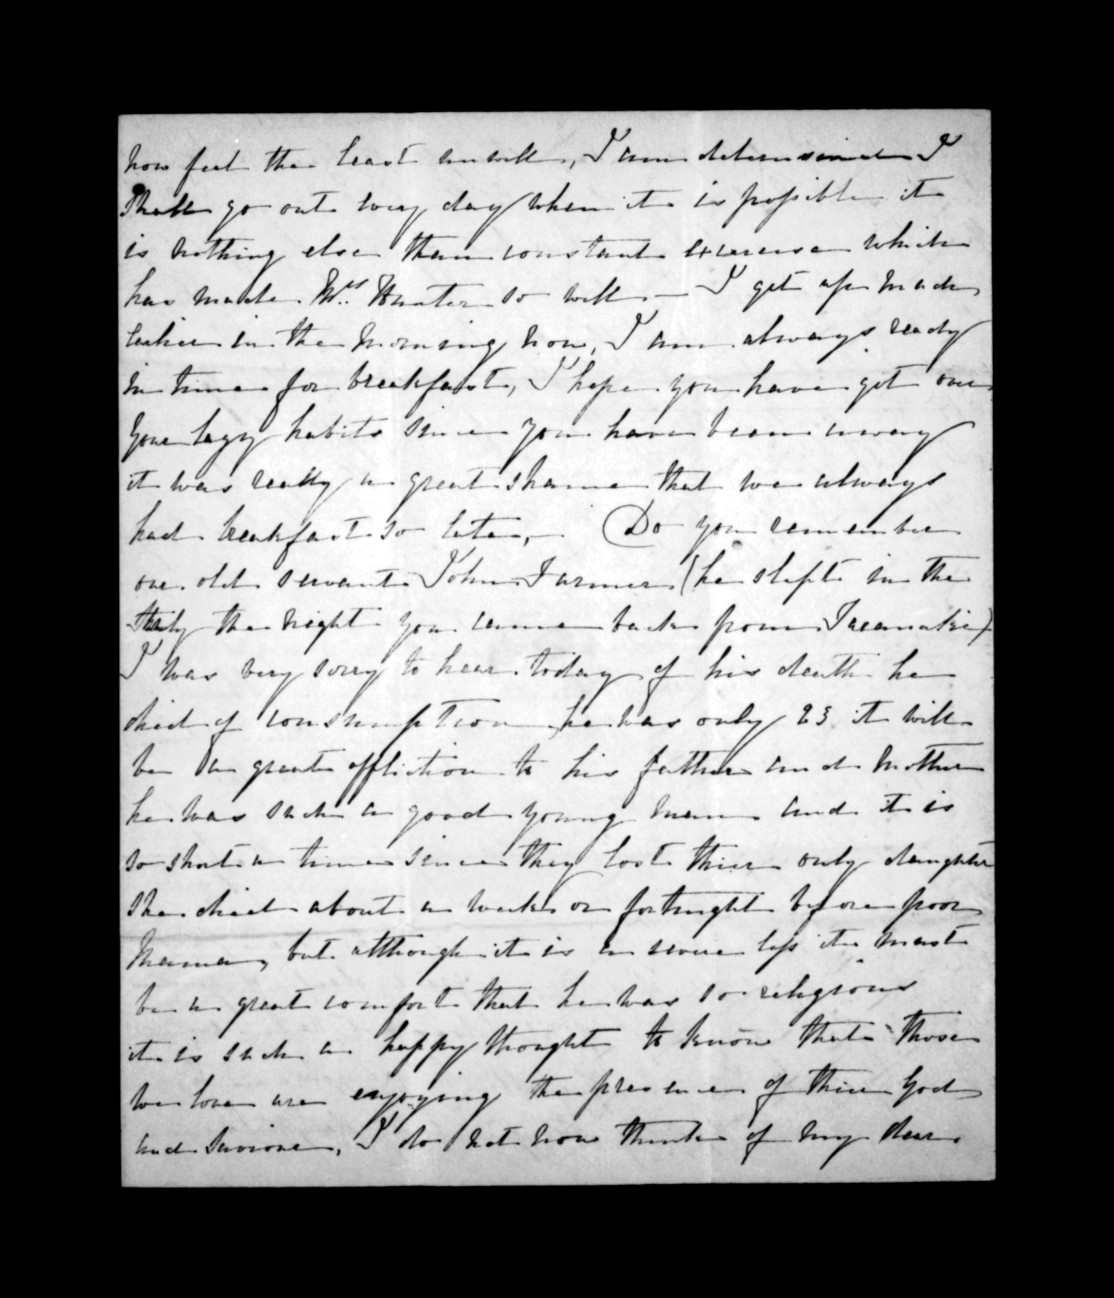 now feel the least unwell, I am determined I
shall go out every day when it is possible it
is nothing else than constant exercise which
has made Mrs. Hunter so well — I get up much
earlier in the morning now, I am always ready
in time for breakfast, I hope you have got over
your lazy habits since you have been away
it was really a great shame that we always
had breakfast so late, — Do you remember
our old servant John Farmer (he slept in the
the night you came back from Taranaki)
I was very sorry to hear today of his death he
died of consumption he was only 23 it will
be a great affliction to his father and mother
he was such a good young man and it is
so short a time since they lost thier only daughter
she died about a week or fortnight before poor
Mama, but although it is a severe loss it must
be a great comfort that he was so religious
it is such a happy thought to know that those
we love are enjoying the presence of thier God
and Saviour, I do not now think of my dear